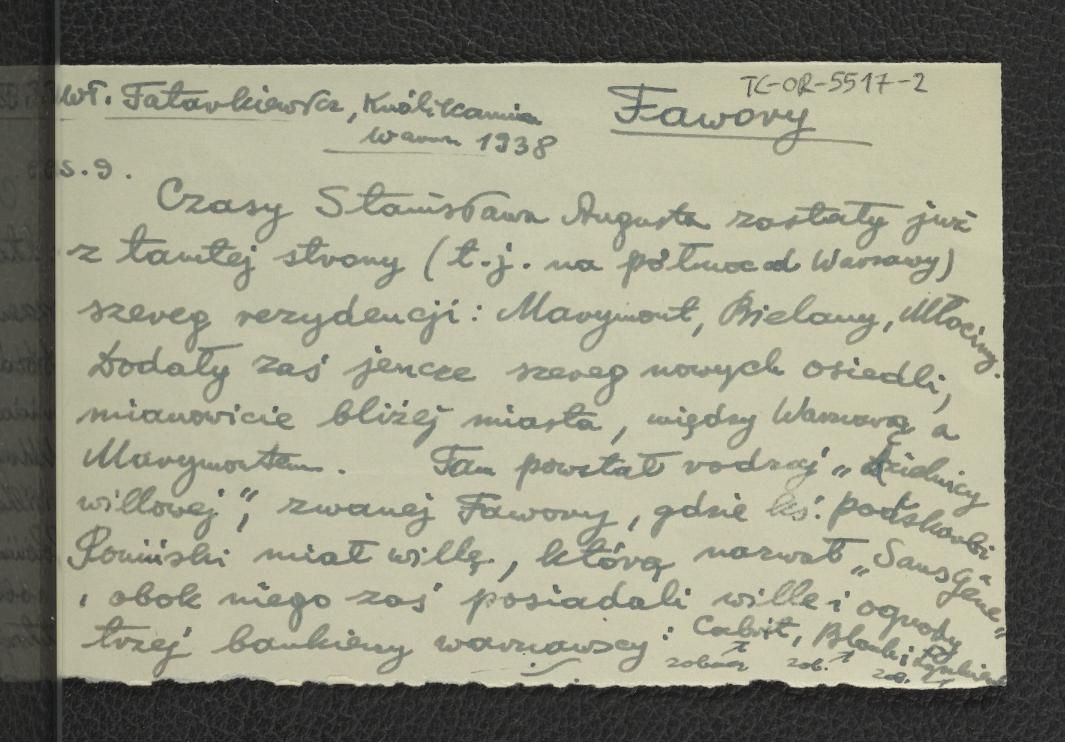 TC-OR-5517-2
Wł. Tatarkiewicz, Królikarnia Fawory
Warsz 1938
s. 9.
Czasy Stanisława Augusta zastały już
z tamtej strony (t.j. na północ od Warszawy)
szereg rezydencji: Marymont, Bielany, Młociny.
Dodały zaś jeszcze szereg nowych osiedli,
mianowicie bliżej miasta, między Warszawą a
Marymontem. Tam powstał rodzaj „dzielnicy
willowej", zwanej Fawory, gdzie ks. podskarbi
Poniński miał willę, którą nazwał „Sans Gêne"
, obok niego zaś posiadali wille i ogrody
trzej bankierzy warszawscy: Cabrit, Blank i
zobacz zob. zob.